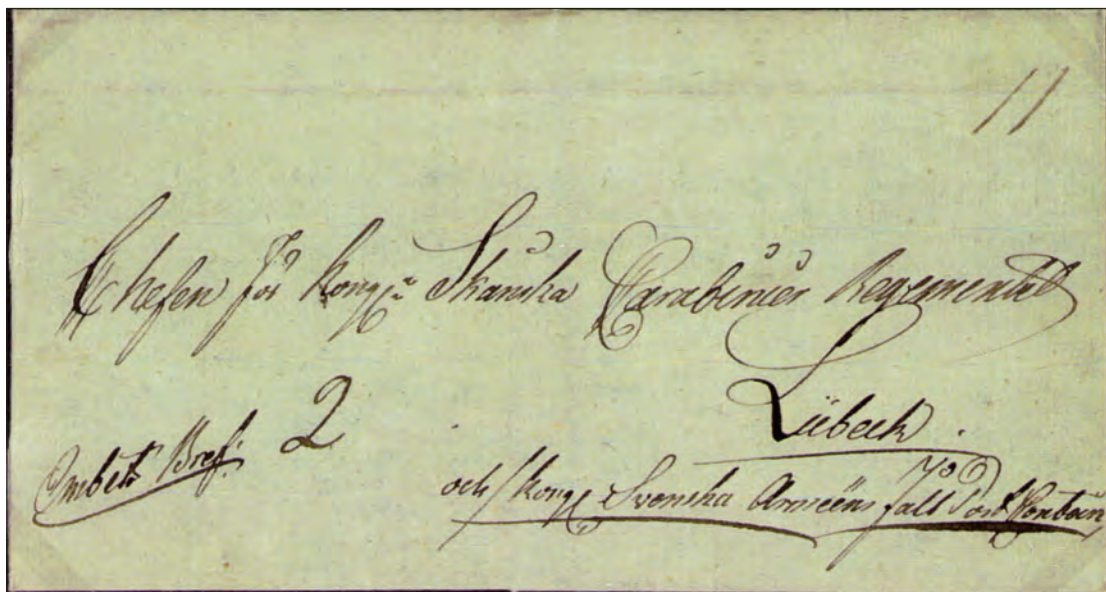 11
Chefen för Kongl: Skånska Carabinier Regementet
Lübeck.
Embets Bref. 2
och / Kongl Svenska Arméens fält Post Contoir